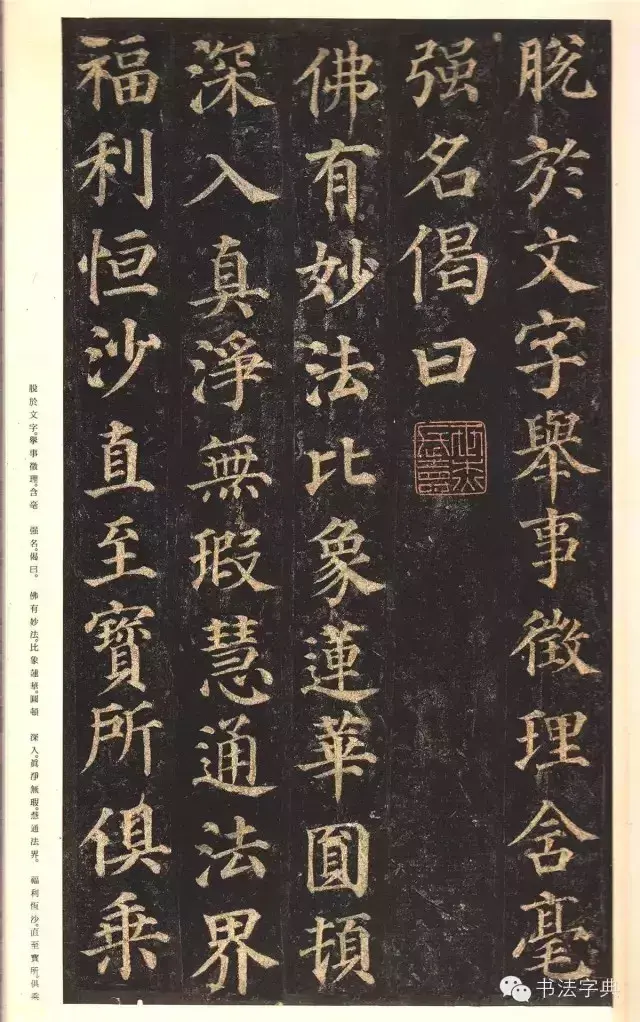 脫於文字舉事徵理含毫
强名偈曰
佛有妙法比象蓮華圓頓
深入真淨無瑕慧通法界
福利恒沙直至寶所俱乘
脫於文字。舉事徵理。含毫　强名。偈曰。　佛有妙法。比象蓮華。圓頓　深入。眞淨無瑕。慧通法界。　福利恆沙。直至寶所。俱乘
书法字典